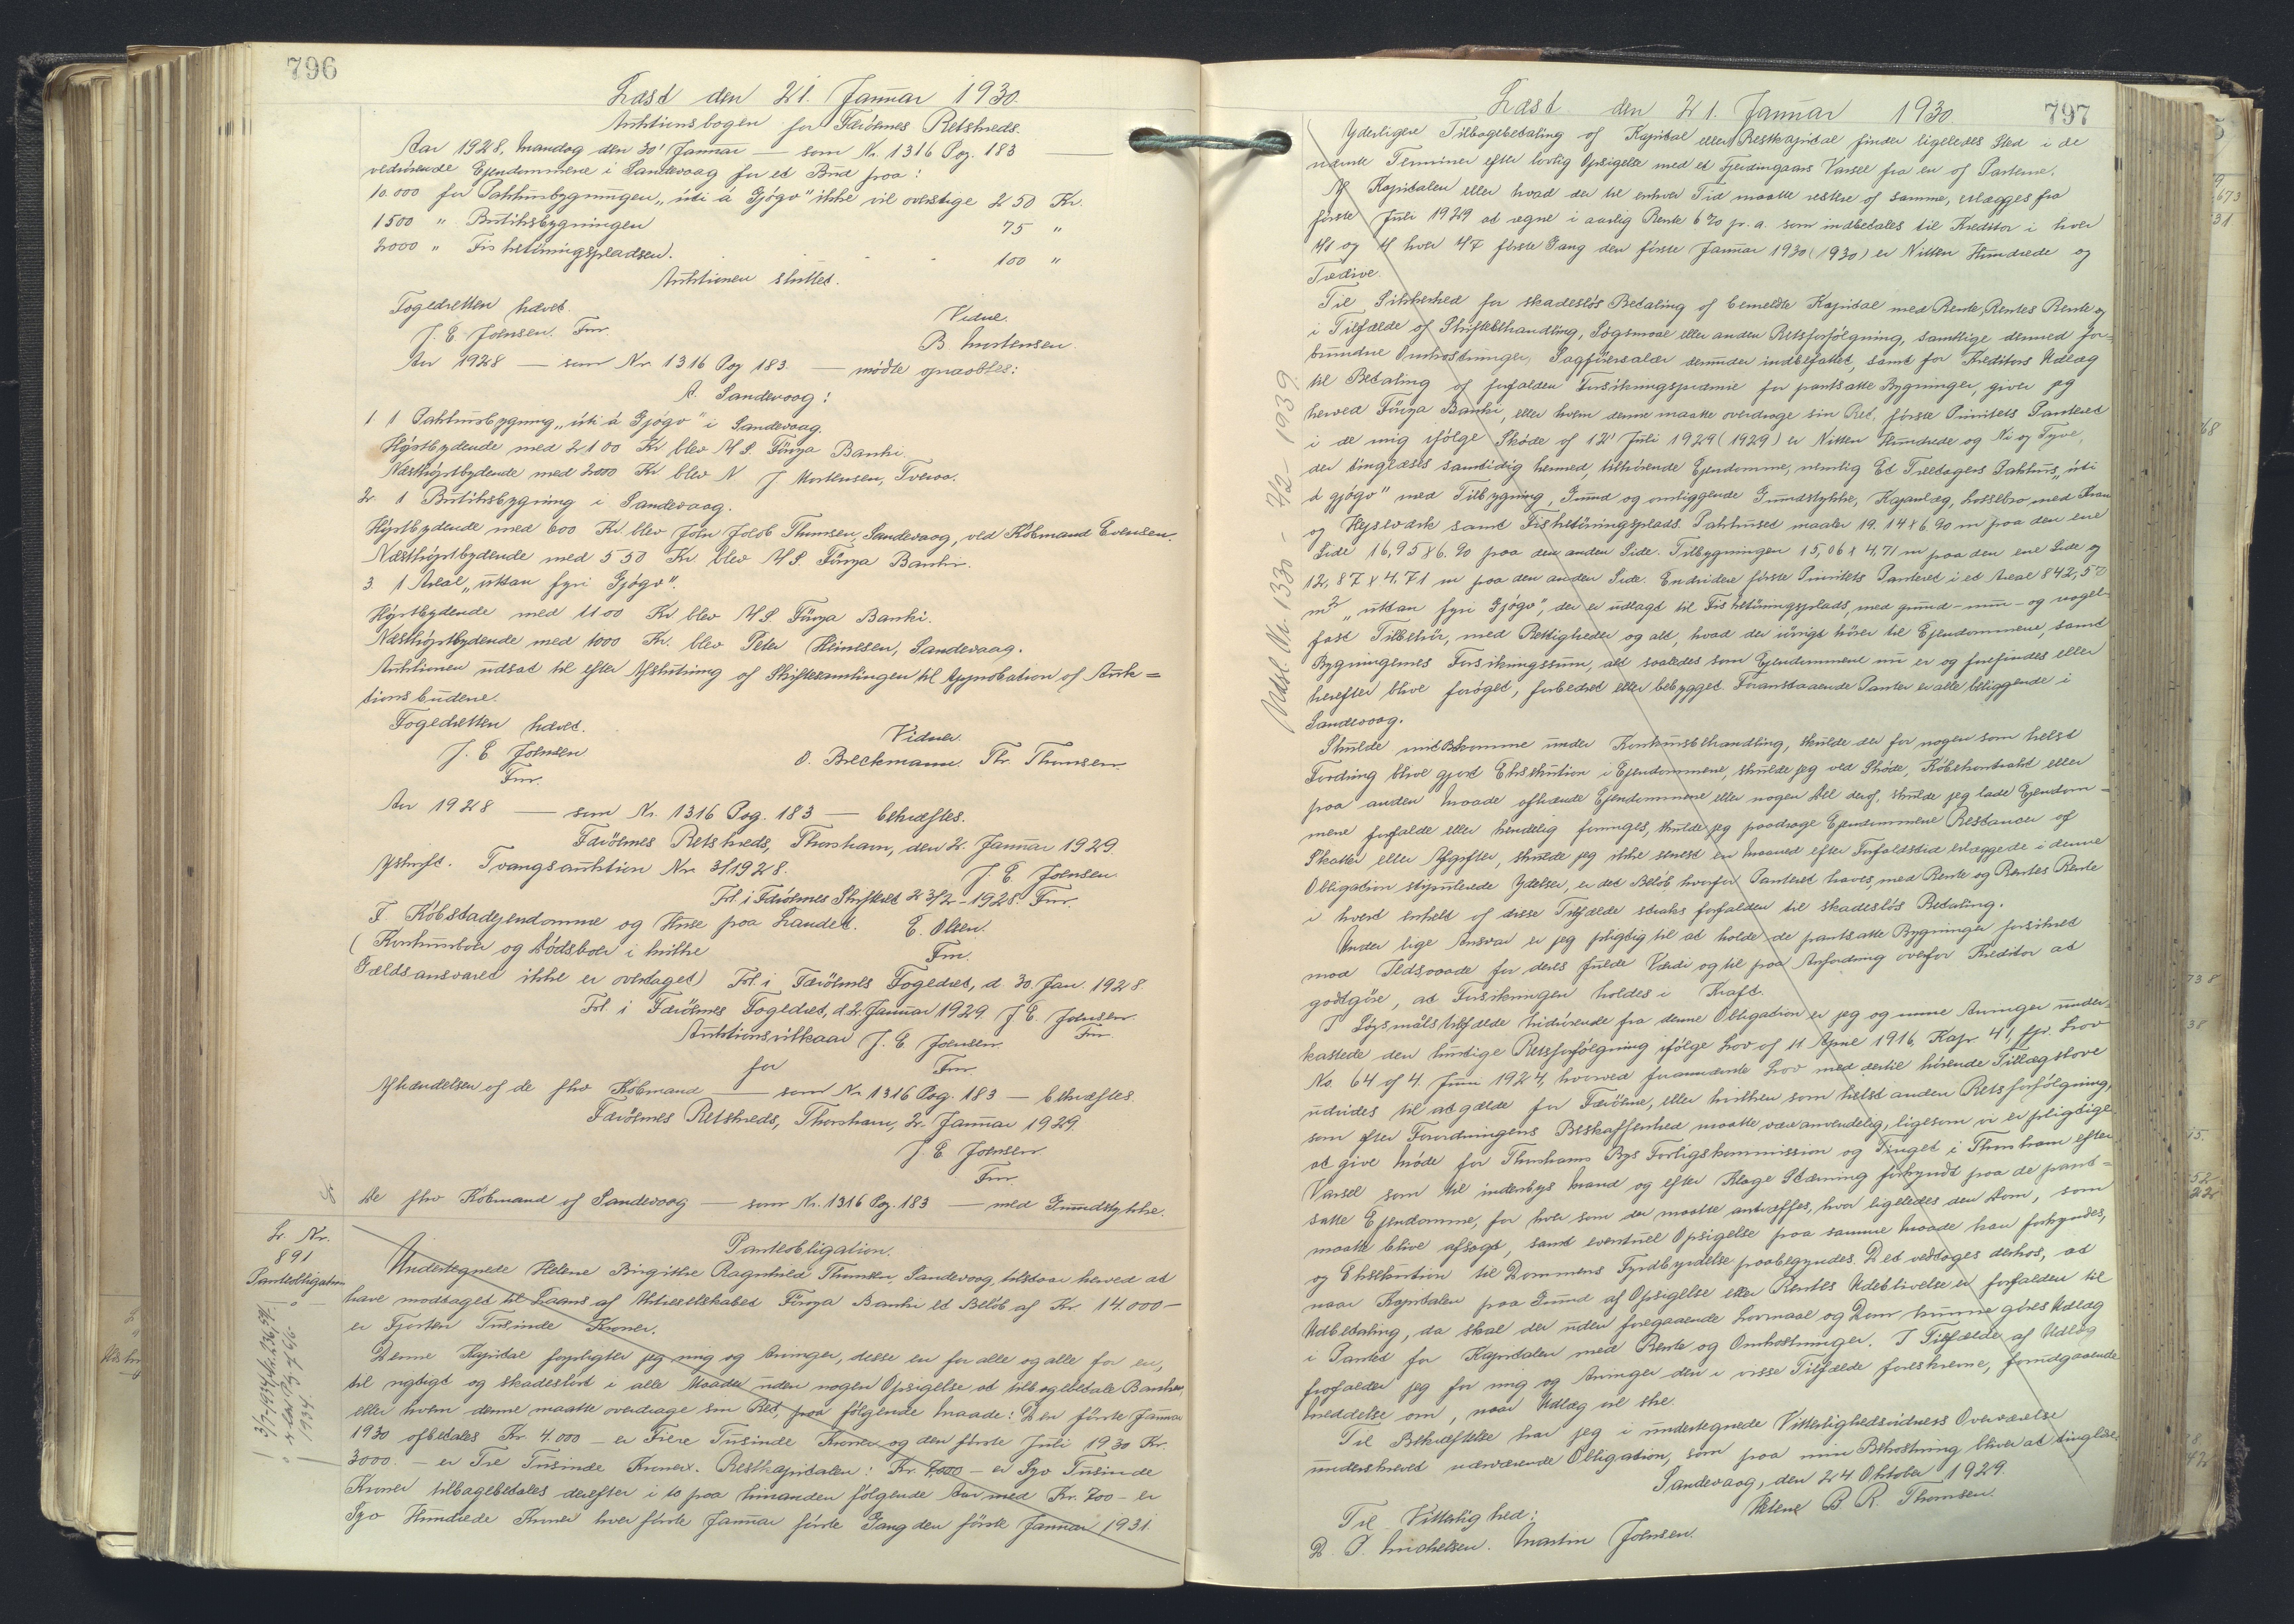 796
Læst den 21. Januar 1930.
Auktionsbogen for Færöernes Retskreds.
Aar 1928, Mandag den 30' Januar — som Nr. 1316 Pag. 183 —
vedrörende Ejendommene i Sandevaag for et Bud paa:
10.000 for Pakhusbygningen „úti á Gjógv" ikke vil overstige 250 Kr.
1500 " Butiksbygningen 75 "
2000 " Fisketörringspladsen. 100 "
Auktionen sluttet.
Fogedretten hævet.
Vidne.
J. E. Joensen. Fm.
B Mortensen.
Aar 1928 — som Nr. 1316 Pag 183. — mödte
A. Sandevaag:
1 1 Pakhusbygning „úti á Gjógv" i Sandevaag.
Højstbydende med 2100 Kr blev A/S. Föroya Banki.
Næsthöjstbydende med 2000 Kr blev N. J Mortensen, Tveraa.
2. 1 Butiksbygning i Sandevaag.
Höjstbydende med 600 Kr. blev John Jakob Thomsen, Sandevaag, ved Köbmand Evensen.
Næsthöjstbydende med 550 Kr. blev A/S. Föroya Banki.
3 1 Areal „uttan fyri Gjógv".
Höjstbydende med 1100 Kr blev A/S. Föroya Banki.
Næsthöjstbydende med 1000 Kr. blev Peter Heinesen, Sandevaag.
Auktionen udsat til efter Afslutning af Skiftesamlingen til Approbation af Auk=
tionsbudene.
Fogedretten hævet.
Vidner.
J. E Joensen
O. Breckmann. Thr. Thomsen.
Fm.
Aar 1928 — som Nr. 1316 Pag. 183 — bekræftes.
Færöernes Retskreds, Thorshavn, den 2. Januar 1929.
Afskrift. Tvangsauktion Nr. 3/1928.
J. E. Joensen.
Frl. i Færöernes Skifteret 23/2-1928. Fm.
I Köbstadejendomme og Huse paa Landet.
E. Olsen.
(Konkursboer og Dödsboer i hvilke
Fm.
Gældsansvaret ikke er overtaget) Frl. i Færöernes Fogedret, d. 30. Jan. 1928.
Frl. i Færöernes Fogedret, d. 2. Januar 1929. J. E. Joensen.
Auktionsvilkaar J. E. Joensen.
Fm
for
Fm.
Afhændelsen af de fhv Köbmand — som Nr 1316 Pag. 183 — bekræftes.
Færöernes Retskreds, Thorshavn, 2. Januar 1929.
J. E Joensen.
Fm.
De fhv Köbmand af Sandevaag — som Nr. 1316 Pag. 183 — med Grundstykke.
L. Nr.
891
Pantobligation
Pantobligation.
Undertegnede Helene Birgithe Ragnhild Thomsen, Sandevaag, tilstaar herved at
have modtaget til Laans af Aktieselskabet Föroya Banki et Belöb af Kr. 14.000 —
er Fjorten Tusinde Kroner.
Denne Kapital forpligter jeg mig og Arvinger, disse en for alle og alle for en,
til rigtigt og skadeslöst i alle Maader uden nogen Opsigelse at tilbagebetale Banken,
eller hvem denne maatte overdrage sin Ret, paa fölgende Maade: Den förste Januar
1930 afbetales Kr. 4.000 — er Fiere Tusinde Kroner og den förste Juli 1930 Kr.
3000. — er Tre Tusinde Kroner. Restkapitalen: Kr. 7000 — er Syv Tusinde
Kroner tilbagebetales derefter i to paa hinanden fölgende Aar med Kr. 700 — er
Syv Hundrede Kroner hver förste Januar förste Gang den förste Januar 1931.
797
Læst den 21. Januar 1930
Yderligere Tilbagebetaling af Kapital eller Restkapital finder ligeledes Sted i de
nævnte Terminer efter lovlig Opsigelse med et Fjerdingaars Varsel fra en af Parterne.
Af Kapitalen eller hvad der til enhver Tid maatte restere af samme, erlægges fra
förste Juli 1929 at regne i aarlig Rente 6% pr. a. som indbetales til Kreditor i hver
1/1 og 1/7 förste Gang den förste Januar 1930 (1930) er Nitten Hundrede og
Tredive.
Til Sikkerhed for skadeslös Betaling af bemeldte Kapital med Rente, Rentes Rente og
i Tilfælde af Skiftebehandling, Sögsmaal eller anden Retsforfölgning, samtlige dermed for=
bundne Omkostninger, Sagförersalær derunder indbefattet, samt for Kreditors Udlæg
til Betaling af forfalden Forsikringspræmie for pantsatte Bygninger, giver jeg
herved Föroya Banki, eller hvem denne maatte overdrage sin Ret, förste Prioritets Panteret
i de mig ifölge Sköde af 12' Juli 1929 (1929) er Nitten Hundrede og Ni og Tyve,
der tinglæses samtidig hermed, tilhörende Ejendomme, nemlig Et Treetagers Pakhus, „úti
á gjógv" med Tilbygning, Grund og omliggende Grundstykke, Kajanlæg, Lossebro med Kran
og Hejseværk samt Fisketörringsplads. Pakhuset maaler 19.14 x 6.90 m paa den ene
Side 16,95 x 6.90 paa den anden Side. Tilbygningen 15,06 x 4,71 m paa den ene Side og
12,87 x 4.71 m paa den anden Side. Endvidere förste Prioritets Panteret i et Areal 842,50
m² „uttan fyri Gjógv", der er udlagt til Fisketörringsplads, med grund- mur- og nagel-
fast Tilbehör, med Rettigheder og alt, hvad der iövrigt hörer til Ejendommene, samt
Bygningernes Forsikringssum, alt saaledes som Ejendommene nu er og forefindes eller
herefter blive foröget, forbedret eller bebygget. Foranstaaende Panter er alle beliggende i
Sandevaag.
Skulde mit Bo komme under Konkursbehandling, skulde der for nogen som helst
Fordring blive gjort Eksekution i Ejendommene, skulde jeg ved Sköde, Köbekontrakt eller
paa anden Maade afhænde Ejendommene eller nogen Del deraf, skulde jeg lade Ejendom=
mene forfalde eller kendelig forringes, skulde jeg paadrage Ejendommene Restancer af
Skatter eller Afgifter, skulde jeg ikke senest en Maaned efter Forfaldstid erlæggede i denne
Obligation stipulerede Ydelser, er det Belöb, hvorfor Panteret haves, med Rente og Rentes Rente
i hvert enkelt af disse Tilfælde straks forfalden til skadeslös Betaling.
Under lige Ansvar er jeg pligtig til at holde de pantsatte Bygninger forsikret
mod Ildsvaade for deres fulde Værdi og til paa Anfordring overfor Kreditor at
godtgöre, at Forsikringen holdes i Kraft.
I Sögsmålstilfælde hidrörende fra denne Obligation er jeg og mine Arvinger under=
kastede den hurtige Retsforfölgning ifölge Lov af 11 April 1916, Kap. 41, jfr. Lov
No. 64 af 4. Juni 1924, hvorved forannævnte Lov med dertil hörende Tillægslove
udvides til at gælde for Færöerne, eller hvilken som helst anden Retsforfölgning,
som efter Forordningens Beskaffenhed maatte være anvendelig, ligesom vi er pligtige
at give Möde for Thorshavns Bys Forligskommission og Tinget i Thorshavn efter
Varsel som til indenbys Mand og efter Klage Stævning forkyndt paa de pant=
satte Ejendomme, for hver som der maatte antræffes, hvor ligeledes den Dom, som
maatte blive afsagt, samt eventuel Opsigelse paa samme Maade kan forkyndes,
og Eksekution til Dommens Fyrdbyrdelse paabegyndes. Det vedtages derhos, at
naar Kapitalen paa Grund af Opsigelse eller Rentes Udeblivelse er forfalden til
Udbetaling, da skal der uden foregaaende Lovmaal og Dom kunne göres Udlæg
i Pantet for Kapitalen med Rente og Omkostninger. I Tilfælde af Udlæg
frafalder jeg for mig og Arvinger den i visse Tilfælde foreskrevne, forudgaaende
Meddelelse om, naar Udlæg vil ske.
Til Bekræftelse har jeg i undertegnede Vitterlighedsvidners Overværelse
underskrevet nærværende Obligation, som paa min Bekostning bliver at tinglæse.
Sandevaag, den 24 Oktober 1929.
Helene B R. Thomsen.
Til Vitterlighed:
D. P. Michelsen. Martin Joensen.
Udsl. Nr. 1330 - 2/2 - 1939.